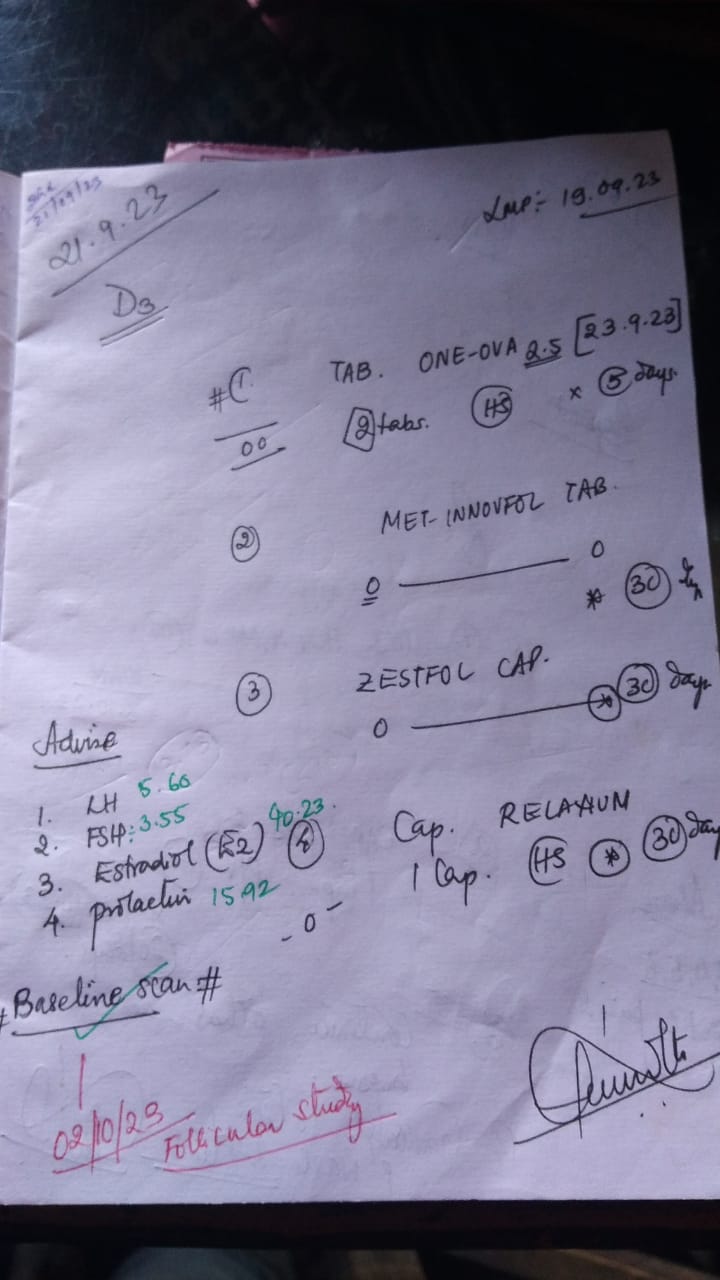 21/09/23
21.9.23
LMP:- 19.09.23
D3
#1. TAB. ONE-OVA 2.5 [23.9.23]
2 tabs. HS × 5 days.
00
2 MET-INNOVFOL TAB.
0 — 0
* 30
3 ZESTFOL CAP.
0 — * 30 days.
Advise
1. LH 5.60
2. FSH:- 3.55
3. Estradiol (E2) 40.23.
4. prolactin 15.92
4 Cap. RELAXUM
1 Cap. HS * 30 days
-0-
# Baseline scan #
02/10/23 Follicular study